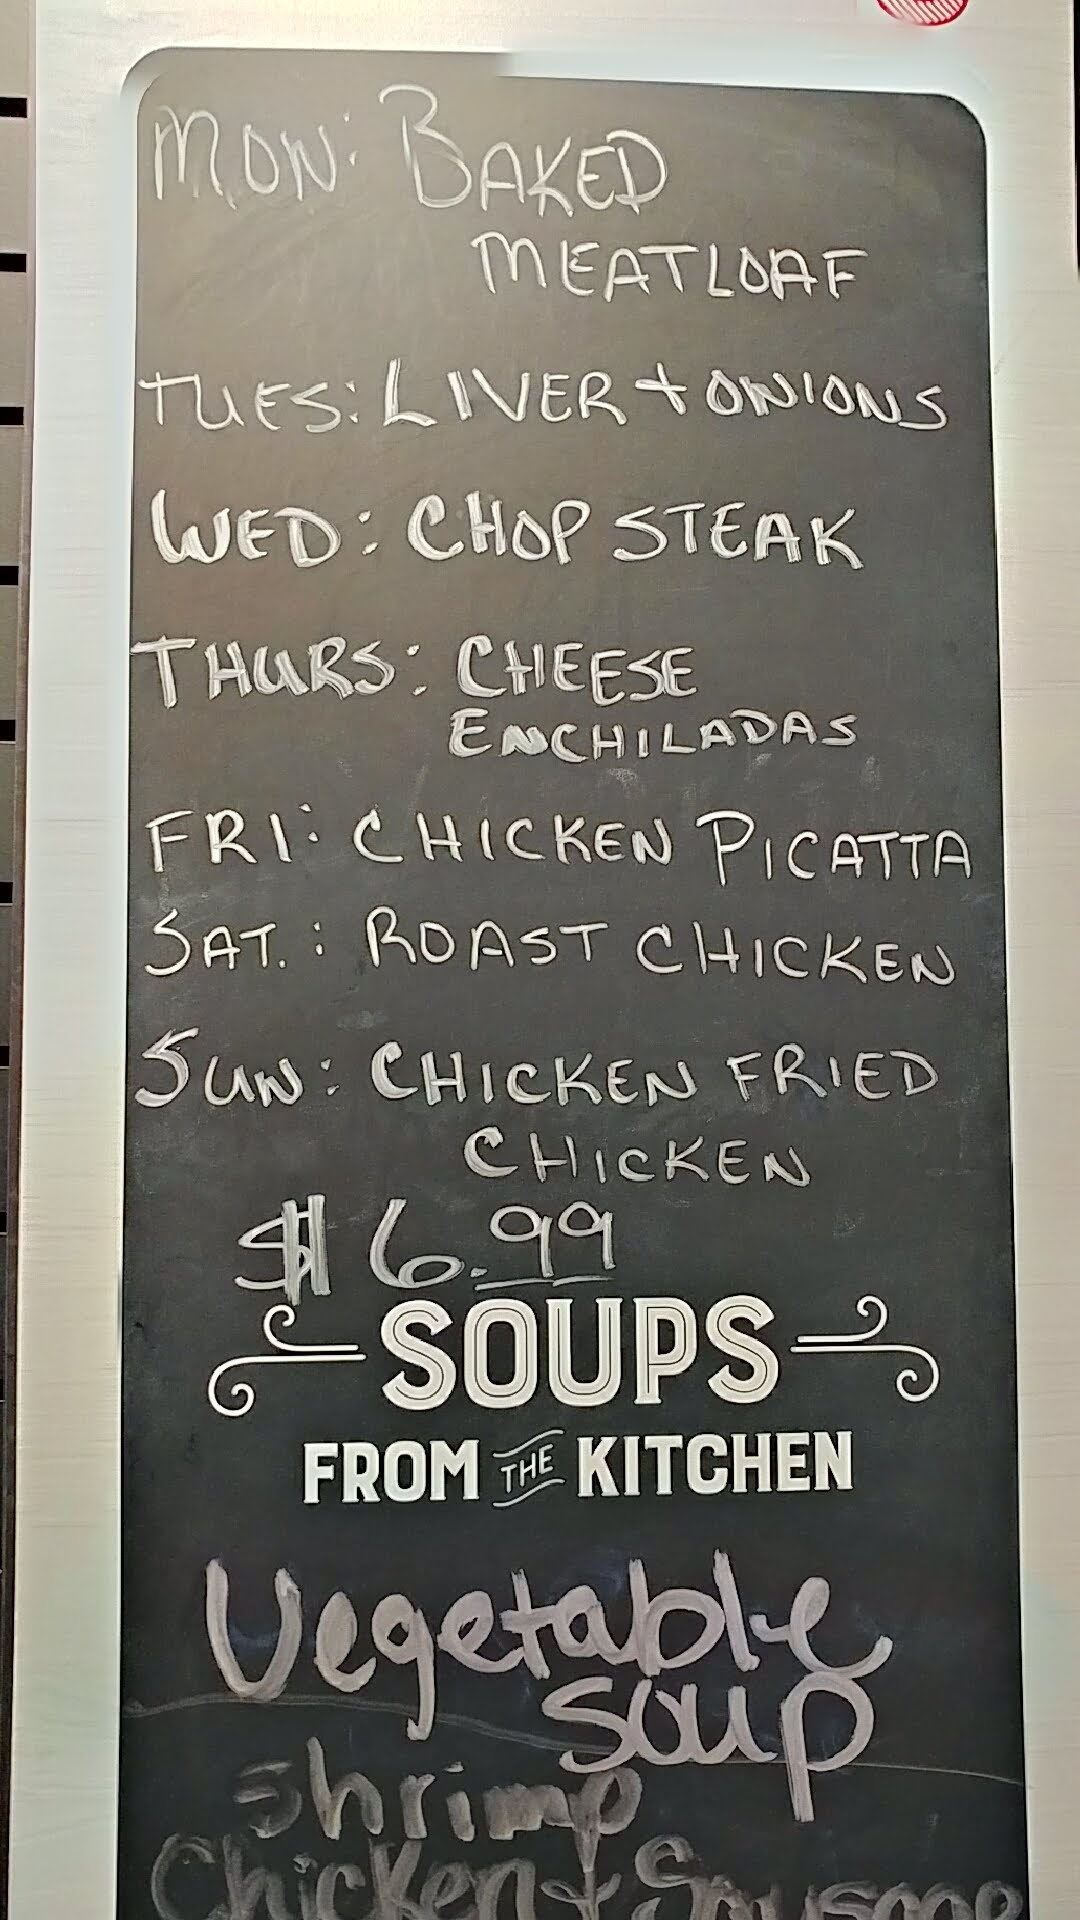 MON: BAKED
MEATLOAF
TUES: LIVER + ONIONS
WED: CHOP STEAK
THURS: CHEESE
ENCHILADAS
FRI: CHICKEN PICATTA
SAT.: ROAST CHICKEN
SUN: CHICKEN FRIED
CHICKEN
$6.99
SOUPS
FROM THE KITCHEN
Vegetable
soup
shrimp
Chicken & Sausage